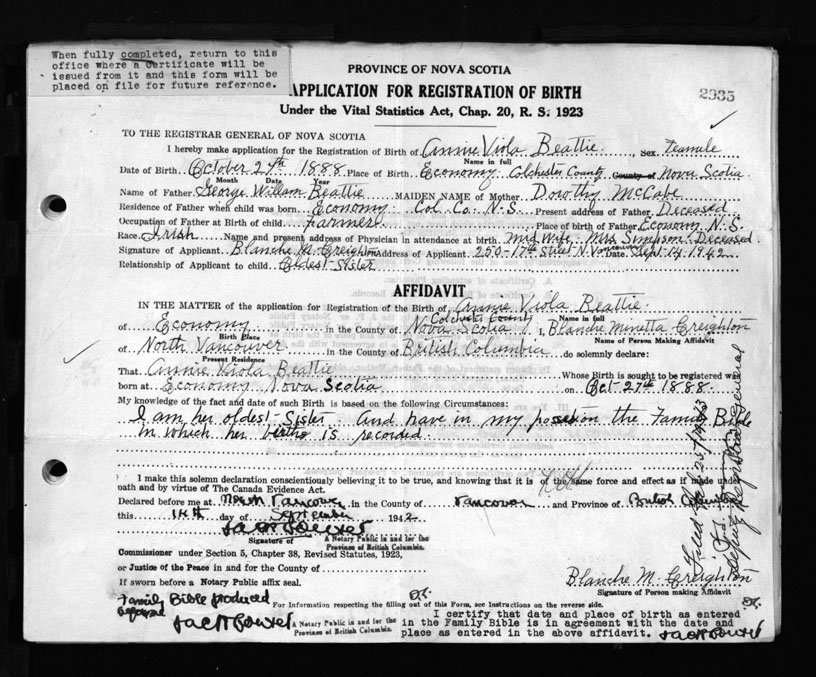 When fully completed, return to this
office where a certificate will be
issued from it and this form will be
placed on file for future reference.
PROVINCE OF NOVA SCOTIA
APPLICATION FOR REGISTRATION OF BIRTH
2935
Under the Vital Statistics Act, Chap. 20, R. S. 1923
TO THE REGISTRAR GENERAL OF NOVA SCOTIA
I hereby make application for the Registration of Birth of Annie Viola Beattie. Sex Feamile
Name in full
Date of Birth October 27th 1888 Place of Birth Economy Colchester County County of Nova Scotia
Month Date Year
Name of Father George Willam Beattie MAIDEN NAME of Mother Dorothy McCabe
Residence of Father when child was born Economy Col. Co. N.S. Present address of Father Deceased
Occupation of Father at Birth of child Farmer Place of birth of Father Economy N.S.
Race Irish Name and present address of Physician in attendance at birth Mid Wife Mrs Simpson Deceased
Signature of Applicant Blanche M. Creighton Address of Applicant 250-17th Street N. Vancouver Date Sept 14 1942
Relationship of Applicant to child Oldest Sister
AFFIDAVIT
IN THE MATTER of the application for Registration of the Birth of Annie Viola Beattie
Name in full
Colchester County
of Economy in the County of Nova Scotia I, Blanche Minetta Creighton
Birth Place Name of Person Making Affidavit
of North Vancouver in the County of British Columbia do solemnly declare:
Present Residence
That Annie Viola Beattie Whose Birth is sought to be registered was
born at Economy Nova Scotia on Oct 27th 1888
My knowledge of the fact and date of such Birth is based on the following Circumstances:
I am her oldest Sister. And have in my the Family Bible
in which her is recorded.
I make this solemn declaration conscientiously believing it to be true, and knowing that it is of the same force and effect as if made under
oath and by virtue of The Canada Evidence Act.
Declared before me at North Vancouver in the County of Vancouver and Province of British
this 14th day of September 1942
Signature of A Notary Public in and for the
Province of British Columbia.
Commissioner under Section 5, Chapter 38, Revised Statutes, 1923,
or Justice of the Peace in and for County of
Blanche M. Creighton
Signature of Person making Affidavit
If sworn before a Notary Public affix seal.
Family Bible produced
For Information respecting the filling out of this Form, see Instructions on the reverse side.
I certify that date and place of birth as entered
in the Family Bible is in agreement with the date and
place as entered in the above affidavit.
A Notary Public in and for the
Province of British Columbia.
Deputy Registrar General